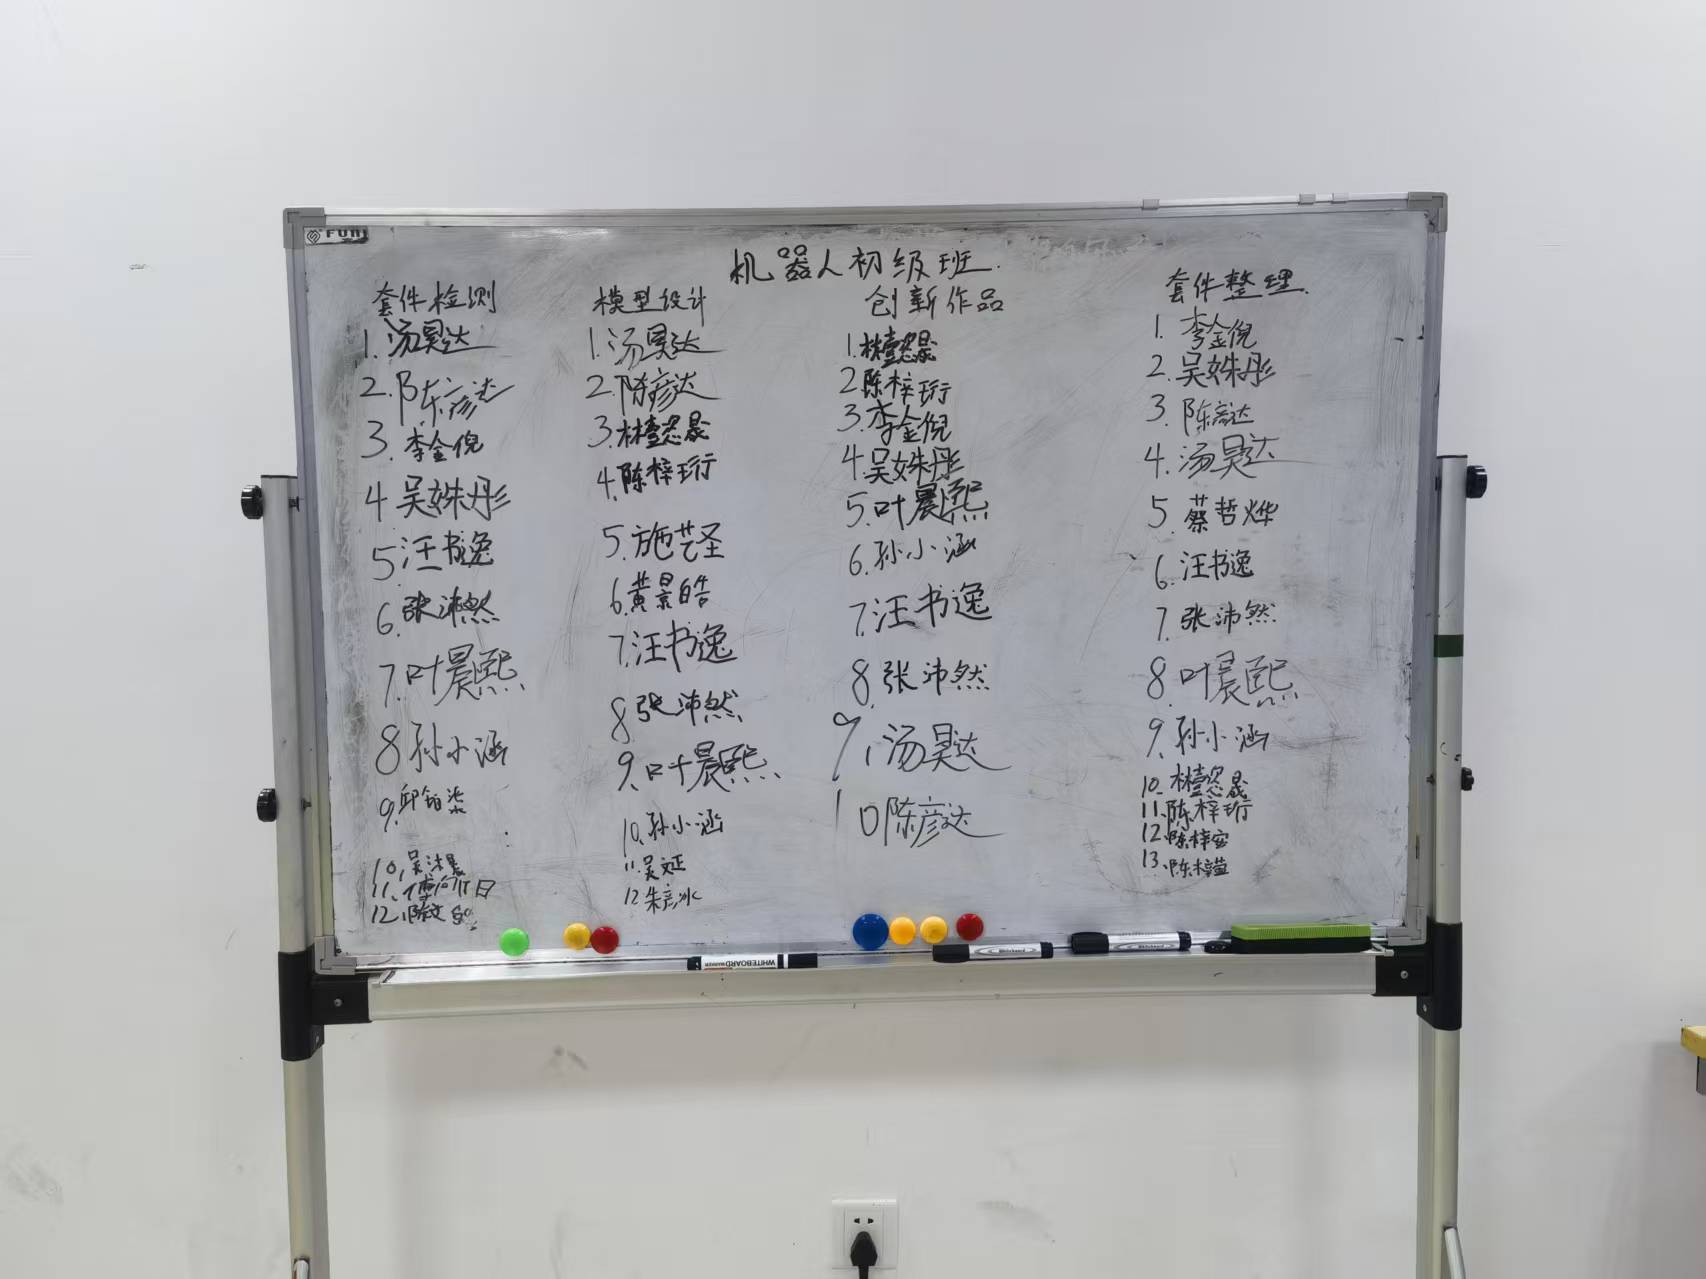 FUNJ
机器人初级班.
套件检测
1.汤昊达
2.陈彦达
3.李金倪
4吴姝彤
5.汪书逸
6.张沛然
7.叶晨熙
8孙小涵
9.邱铂
10.吴沐昊
11.
12.陈文
模型设计
1.汤昊达
2.陈彦达
3.林懿晟
4.陈梓珩
5.施艺圣
6.黄景皓
7.汪书逸
8张沛然
9.叶晨熙
10.孙小涵
11.吴延
12朱彦冰
创新作品
1.林懿晟
2陈梓珩
3.李金倪
4.吴姝彤
5.叶晨熙
6.孙小涵
7.汪书逸
8.张沛然
9.汤昊达
10陈彦达
套件整理.
1.李金倪
2.吴姝彤
3.陈彦达
4.汤昊达
5.蔡哲烨
6.汪书逸
7.张沛然
8.叶晨熙
9.孙小涵
10.林懿晟
11.陈梓珩
12.陈梓安
13.陈梓萱
WHITEBOARD MARKER
Whiteboard
Whiteboard